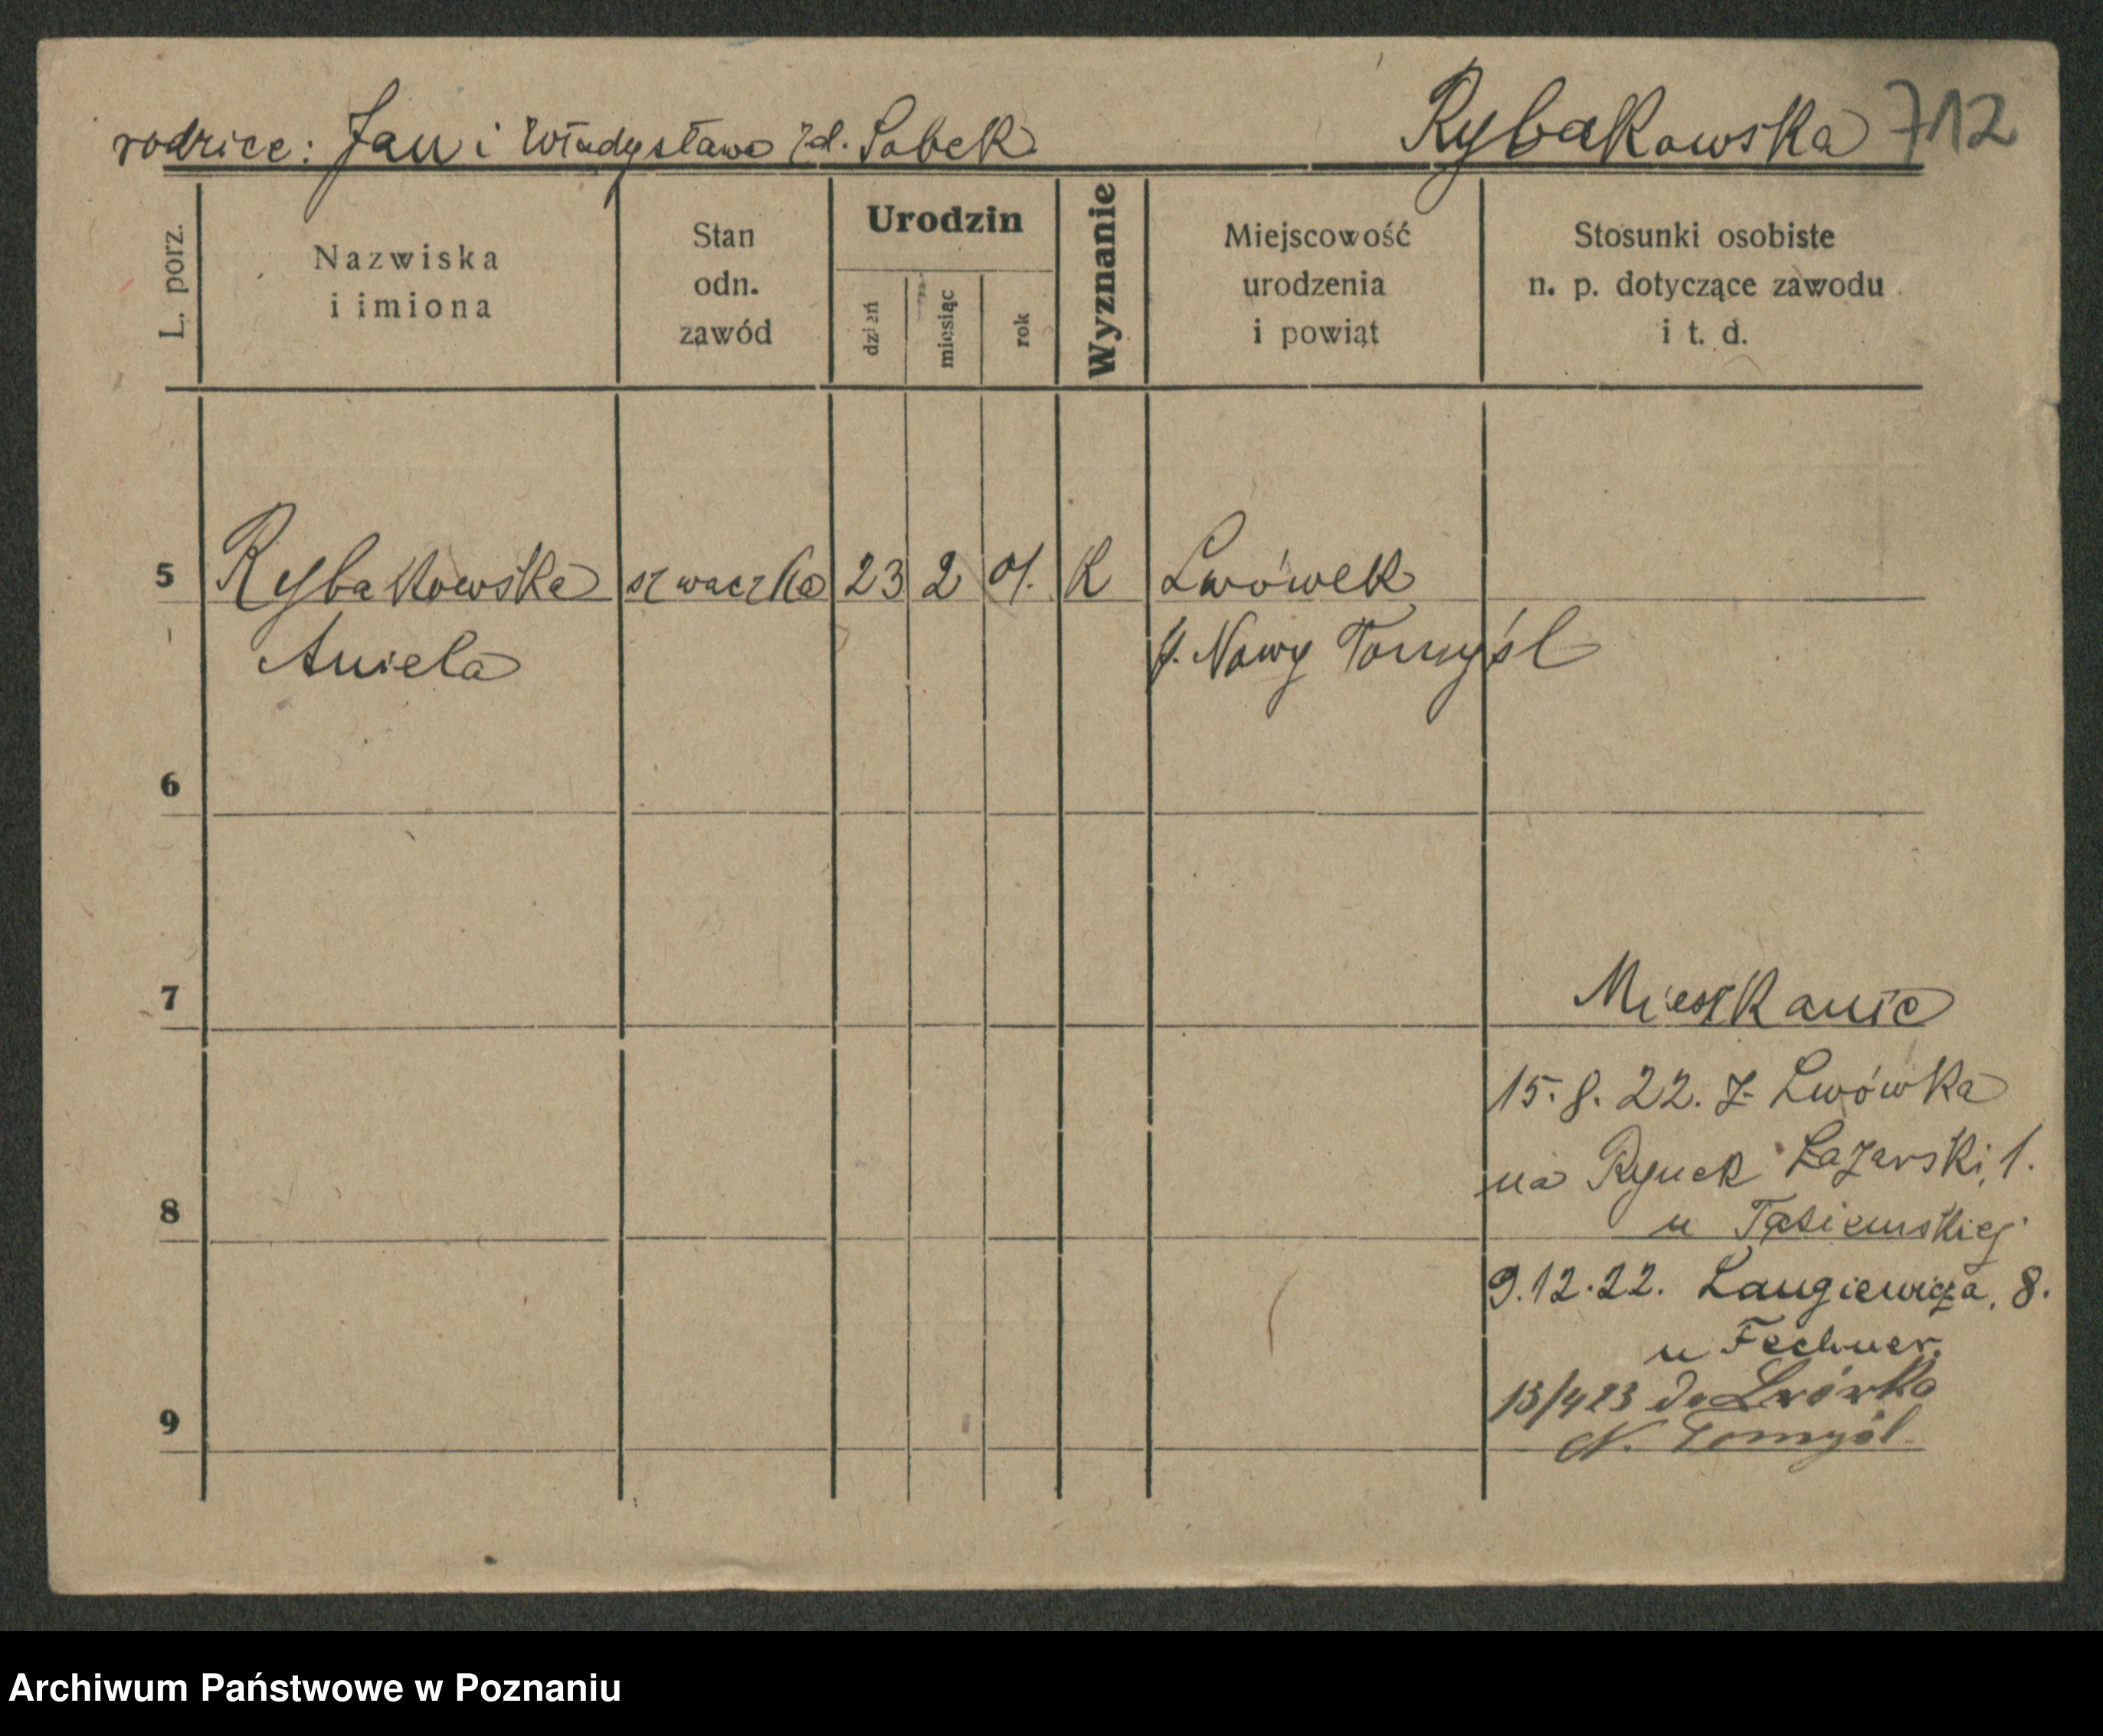 rodzice: Jan i Władysława zd. Sobek.
Rybakowska 712
L. porz.
Nazwiska
i imiona
Stan
odn.
zawód
Urodzin
dzień
miesiąc
rok
Wyznanie
Miejscowość
urodzenia
i powiąt
Stosunki osobiste
n. p. dotyczące zawodu
i t. d.
5 Rybakowska szwaczka 23 2 01. K Lwówek
Aniela p. Nowy Tomyśl
6
7 Mieszkanie
15.8.22. z Lwówka
na Rynek Łazarski, 1.
8
u Tasiemskiej
9.12.22. Langiewicza, 8.
u Fechner.
13/4 23 do Lwówka
9
N. Tomyśl.
Archiwum Państwowe w Poznaniu